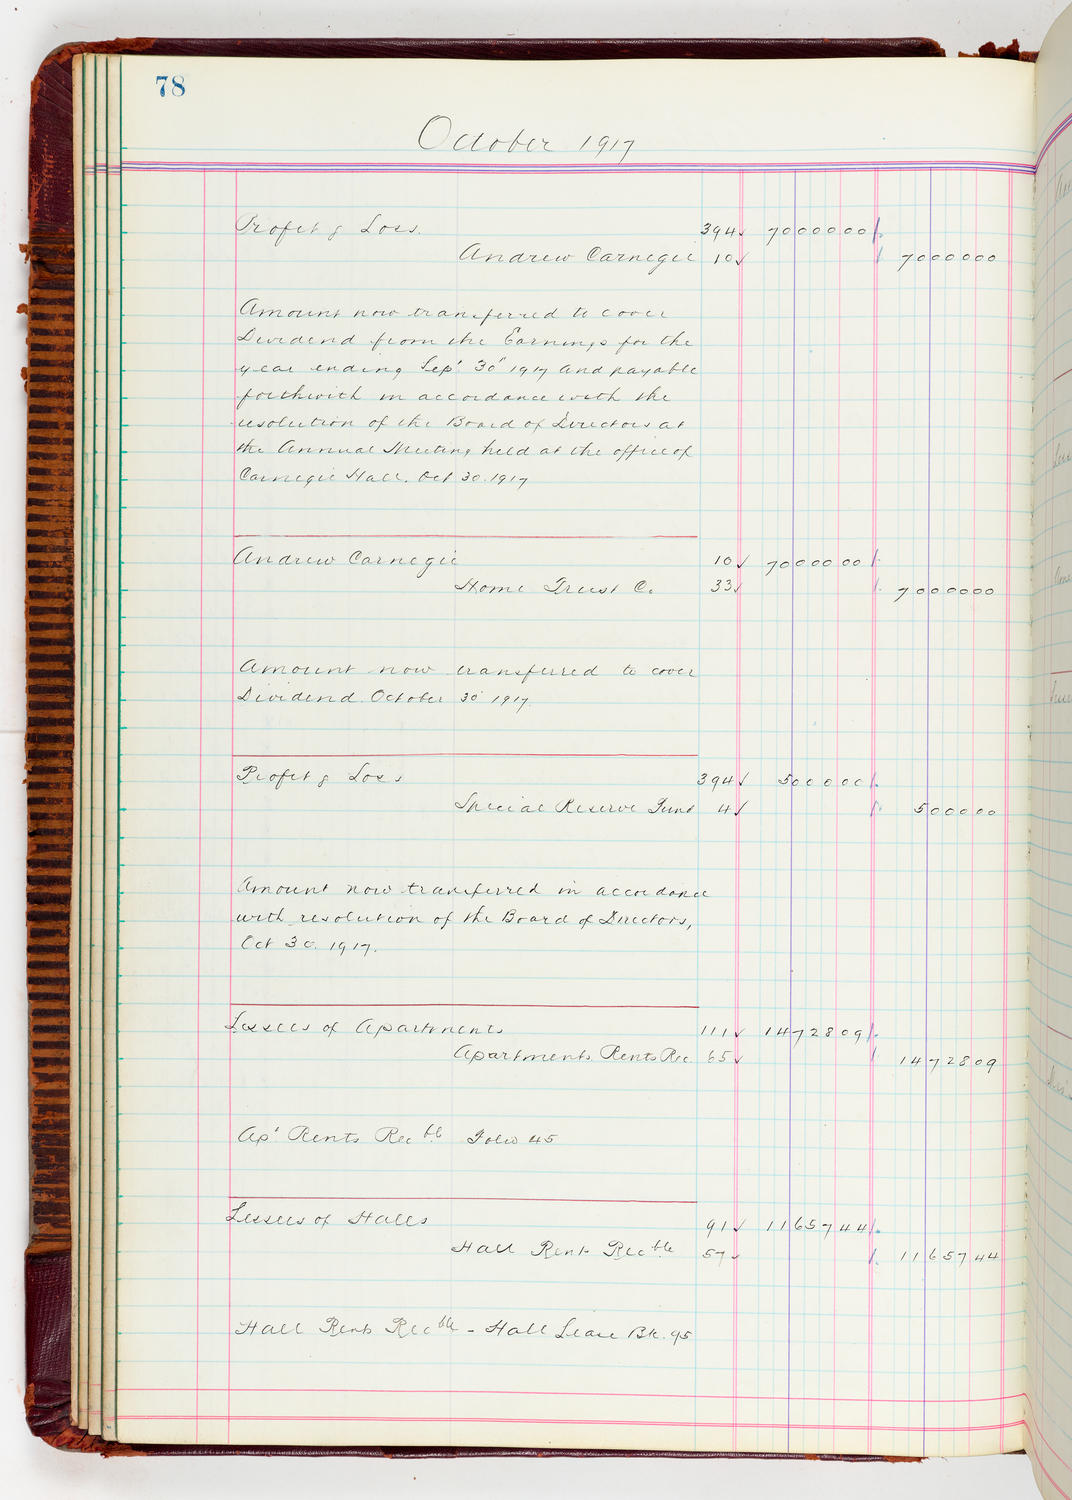 78
October 1917
Profit & Loss. 394 7000000
Andrew Carnegie 10 7000000
Amount now transferred to cover
Dividend from the Earnings for the
year ending Sept 30th 1917 and payable
forthwith in accordance with the
resolution of the Board of Directors at
the Annual Meeting held at the office of
Carnegie Hall. Oct 30. 1917
Andrew Carnegie 10 7000000
Home Trust Co. 33 7000000
Amount now transferred to cover
Dividend. October 30th 1917.
Profit & Loss 394 500000
Special Reserve Fund 4 500000
Amount now transferred in accordance
with resolution of the Board of Directors,
Oct 30. 1917.
Lessees of Apartments 111 1472809
Apartments Rents Rec. 65 1472809
Apt Rents Recble Folio 45
Lessees of Halls 91 1165744
Hall Rents Recble 57 1165744
Hall Rents Recble - Hall Lease Bk. 95